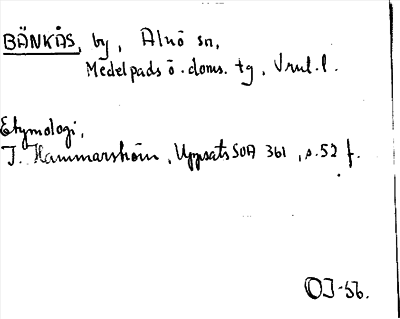 BÄNKÅS, by, Alnö sn,
Medelpads ö. doms. tg, Vnrl. l.
Etymologi,
I. Hammarström, Uppsats SOA 361, s. 52 f.
OJ-56.